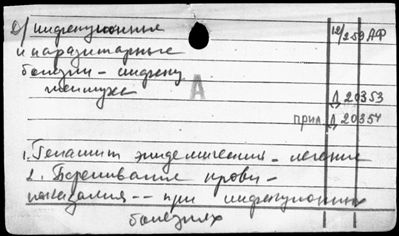 Д/ инфекционные 12/259 АФ
и паразитарные
болезни – инфекц.
А
Д 20353
прил Д 20354
1. Гепатит эпидемический – лечение
2. Переливание крови –
показания -- при инфекционных
болезнях